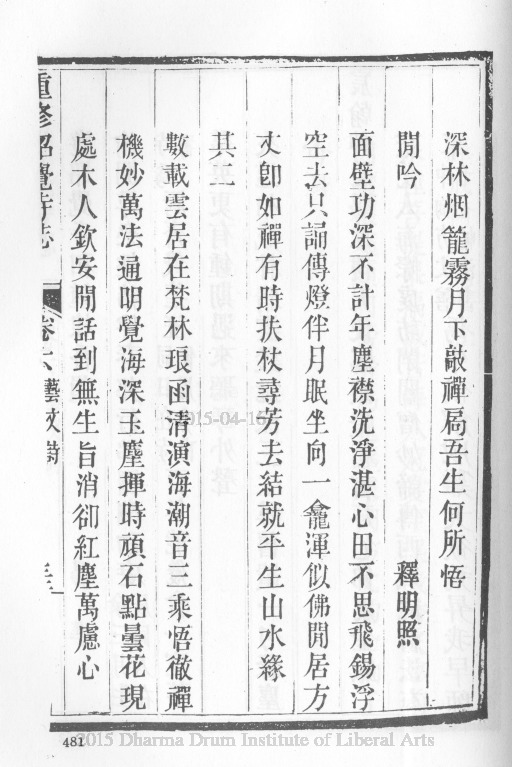 深林烟籠霧月下敲禪扃吾生何所悟
閒吟　釋明照
面壁功深不計年塵襟洗淨湛心田不思飛錫浮
空去只誦傳燈伴月眠坐向一龕渾似佛閒居方
丈卽如禪有時扶杖尋芳去結就平生山水緣
其二
數載雲居在梵林琅函清演海潮音三乘悟徹禪
機妙萬法通明覺海深玉麈揮時頑石點曇花現
處木人欽安閒話到無生旨消卻紅塵萬慮心
重修昭覺寺志
卷六藝文詩
481
2015-04-16
2015 Dharma Drum Institute of Liberal Arts